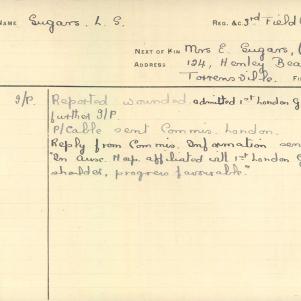 NAME Sugars. L. S. REG. &C. 3rd Field
NEXT OF KIN Mrs E. Sugars,
ADDRESS 124, Henley Bea
Torrensville.
I/P. Reported wounded admitted 1st London G
further I/P.
P/Cable sent Commis. London.
Reply from Commis. Information sen
"In Aux. Hosp. affiliated with 1st London G
sholder, progress favourable."